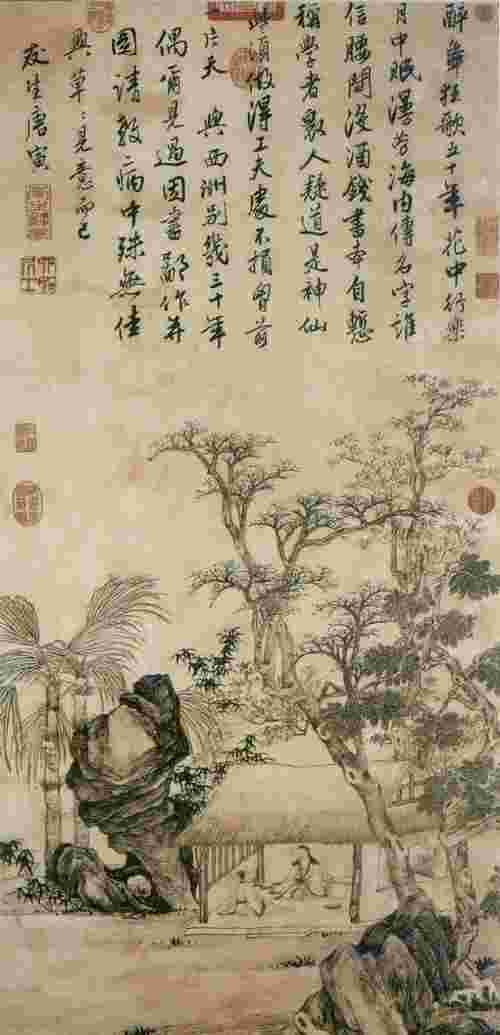 醉舞狂歌五十年花中行樂
月中眠漫勞海内傳名字誰
信腰間沒酒錢書本自慙
稱學者衆人疑道是神仙
些須做得工夫處不損胷前
一片天 與西洲別幾三十年
偶爾見過因書鄙作并
圖請教病中殊無佳
興草〻見意而已
友生唐寅